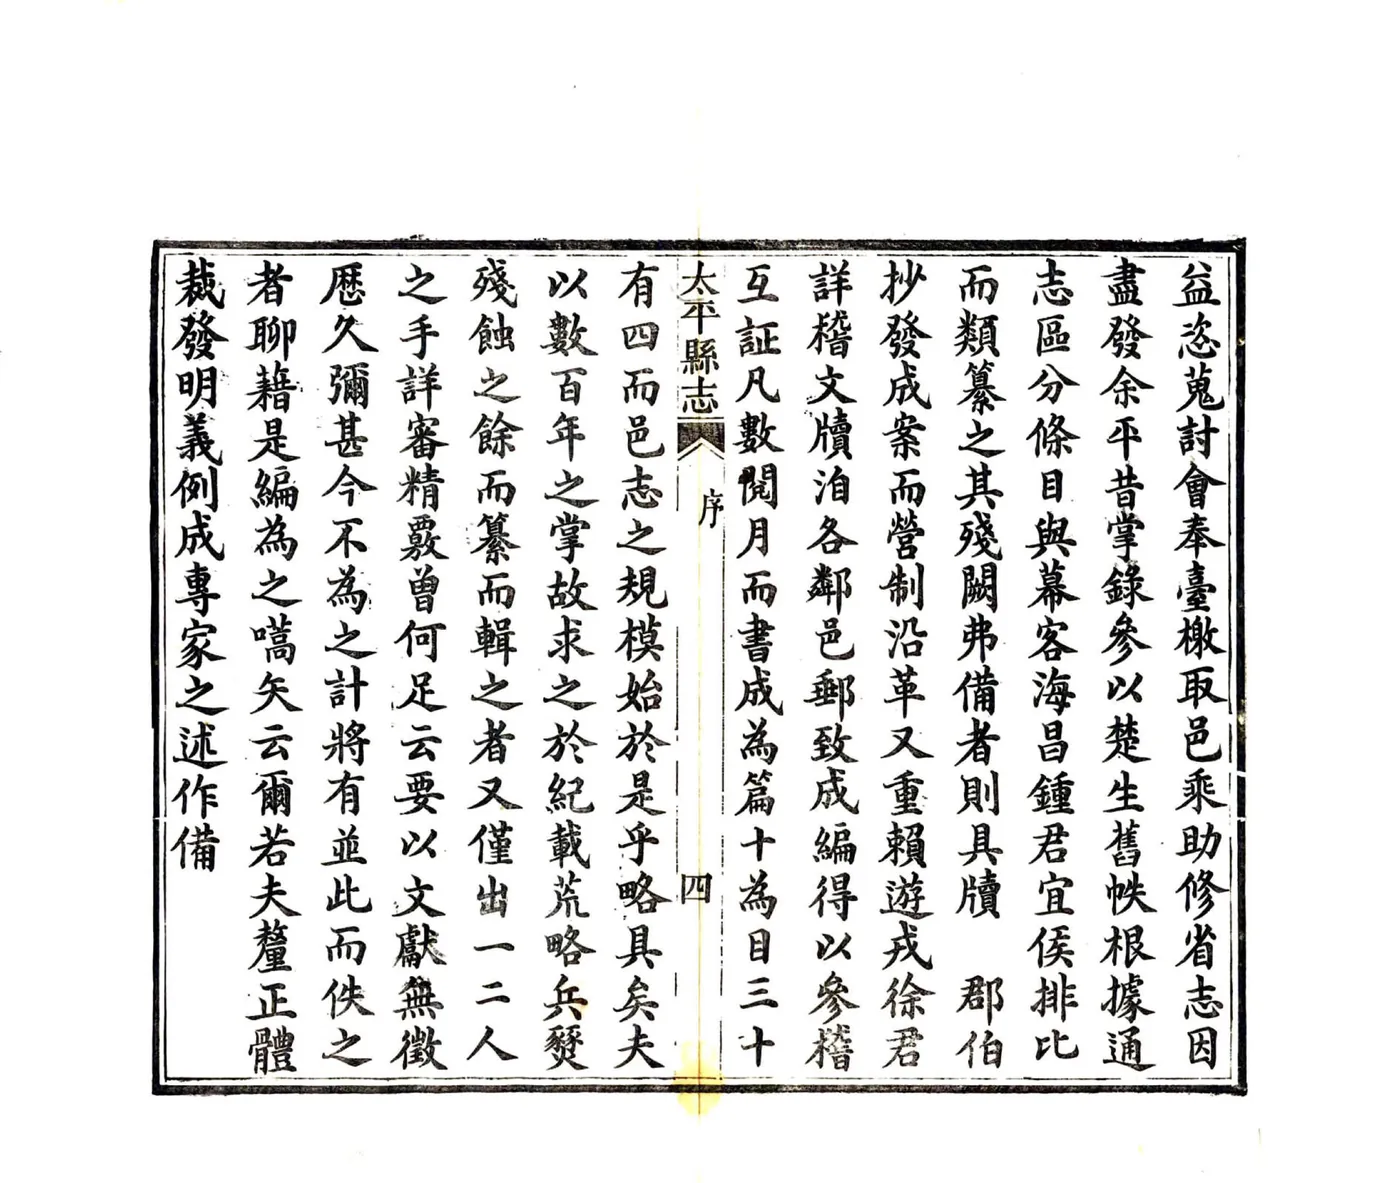 益恣蒐討會奉臺檄取邑乘助修省志因
盡發余平昔掌錄參以楚生舊帙根據通
志區分條目與幕客海昌鍾君宜俟排比
而類纂之其殘闕弗備者則具牘　郡伯
抄發成案而營制沿革又重賴遊戎徐君
詳稽文牘洎各鄰邑郵致成編得以參稽
互証凡數閱月而書成為篇十為目三十
太平縣志
序
四
有四而邑志之規模始於是乎略具矣夫
以數百年之掌故求之於紀載荒略兵燹
殘蝕之餘而纂而輯之者又僅出一二人
之手詳審精覈曾何足云要以文獻無徵
歷久彌甚今不為之計將有並此而佚之
者聊藉是編為之嚆矢云爾若夫釐正體
裁發明義例成專家之述作備